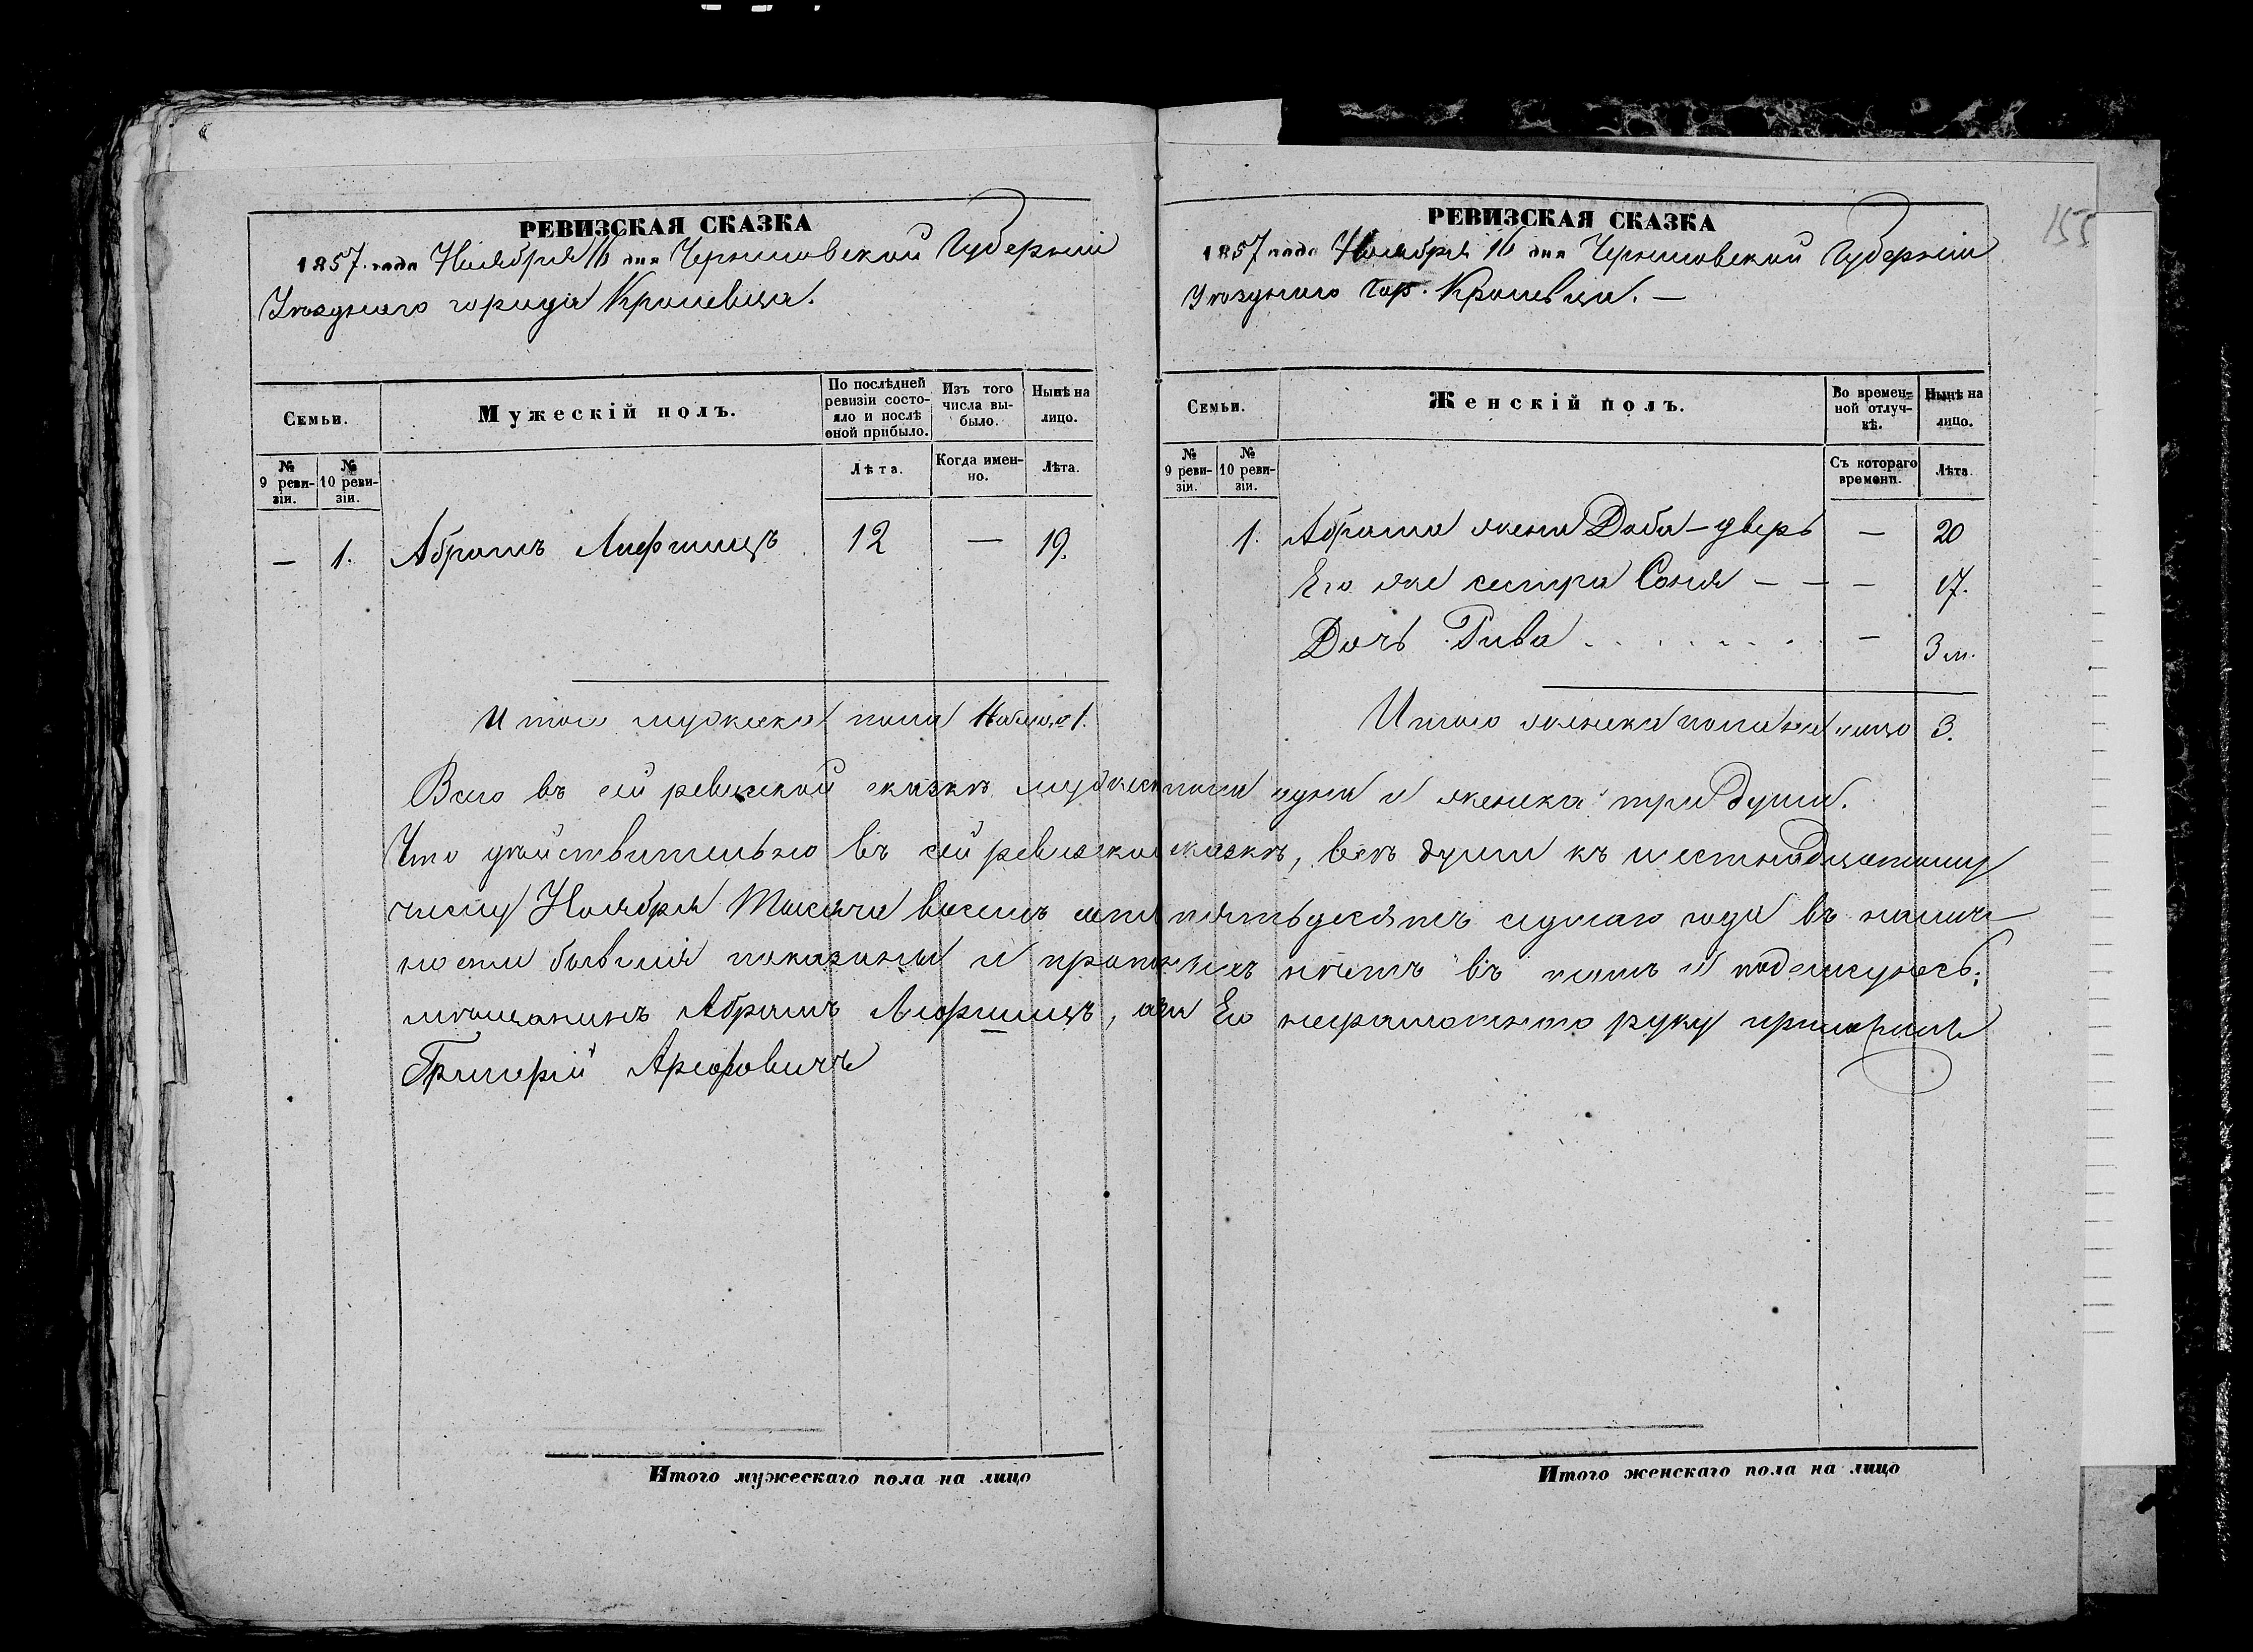 РЕВИЗСКАЯ СКАЗКА
1857. года Ноября 16 дня Черниговской Губерніи
Уѣзднаго города Кролевца.
Семьи.
№ 9 ревизіи.
№ 10 ревизіи.
Мужескій полъ.
По послѣдней ревизіи состояло и послѣ оной прибыло.
Лѣта.
Изъ того числа выбыло.
Когда именно.
Нынѣ на лицо.
Лѣта.
— 1. Абрамъ 12 — 19.
Итого мужеска пола на лицо 1.
РЕВИЗСКАЯ СКАЗКА
155
1857 года Ноября 16 дня Черниговской Губерніи
Уѣзднаго Гор. Кролевца. —
Семьи.
№ 9 ревизіи.
№ 10 ревизіи.
Женскій полъ.
Во временной отлучкѣ.
Съ котораго времени.
Нынѣ на лицо.
Лѣта.
1. Абрама жена Доба-двера — 20
Его же сестра Соня — — — 17.
Дочь Рива . . . . . . . — 3 м.
Итого женска пола на лицо 3.
Всего въ сей ревизской сказкѣ мужеска пола одна и женска три души.
Что дѣйствительно въ сей ревизской сказкѣ, всѣ души къ шестнадцатому
числу Ноября Тысяча восемь сотъ пятьдесятъ седмаго года въ налич
ности бывшія показаны и прописныхъ нѣтъ въ томъ и подписуюсь:
мѣщанинъ Абрамъ , а за Его неграмотнаго руку приложилъ
Григорій
Итого мужескаго пола на лицо
Итого женскаго пола на лицо